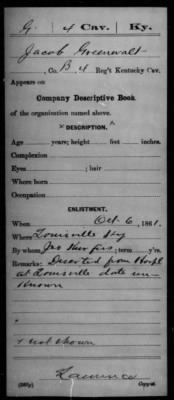 G. 4 Cav. Ky.
Jacob Greenwalt
, Co. B, 4 Reg't Kentucky Cav.
Appears on
Company Descriptive Book
of the organization named above.
× DESCRIPTION. ×
Age years; height feet inches.
Complexion
Eyes ; hair
Where born
Occupation
ENLISTMENT.
When Oct. 6, 1861.
Where Louisville Ky
By whom ; term y'rs.
Remarks: Deserted from Hospl
at Louisville date un-
known
× not shown
Copyist.